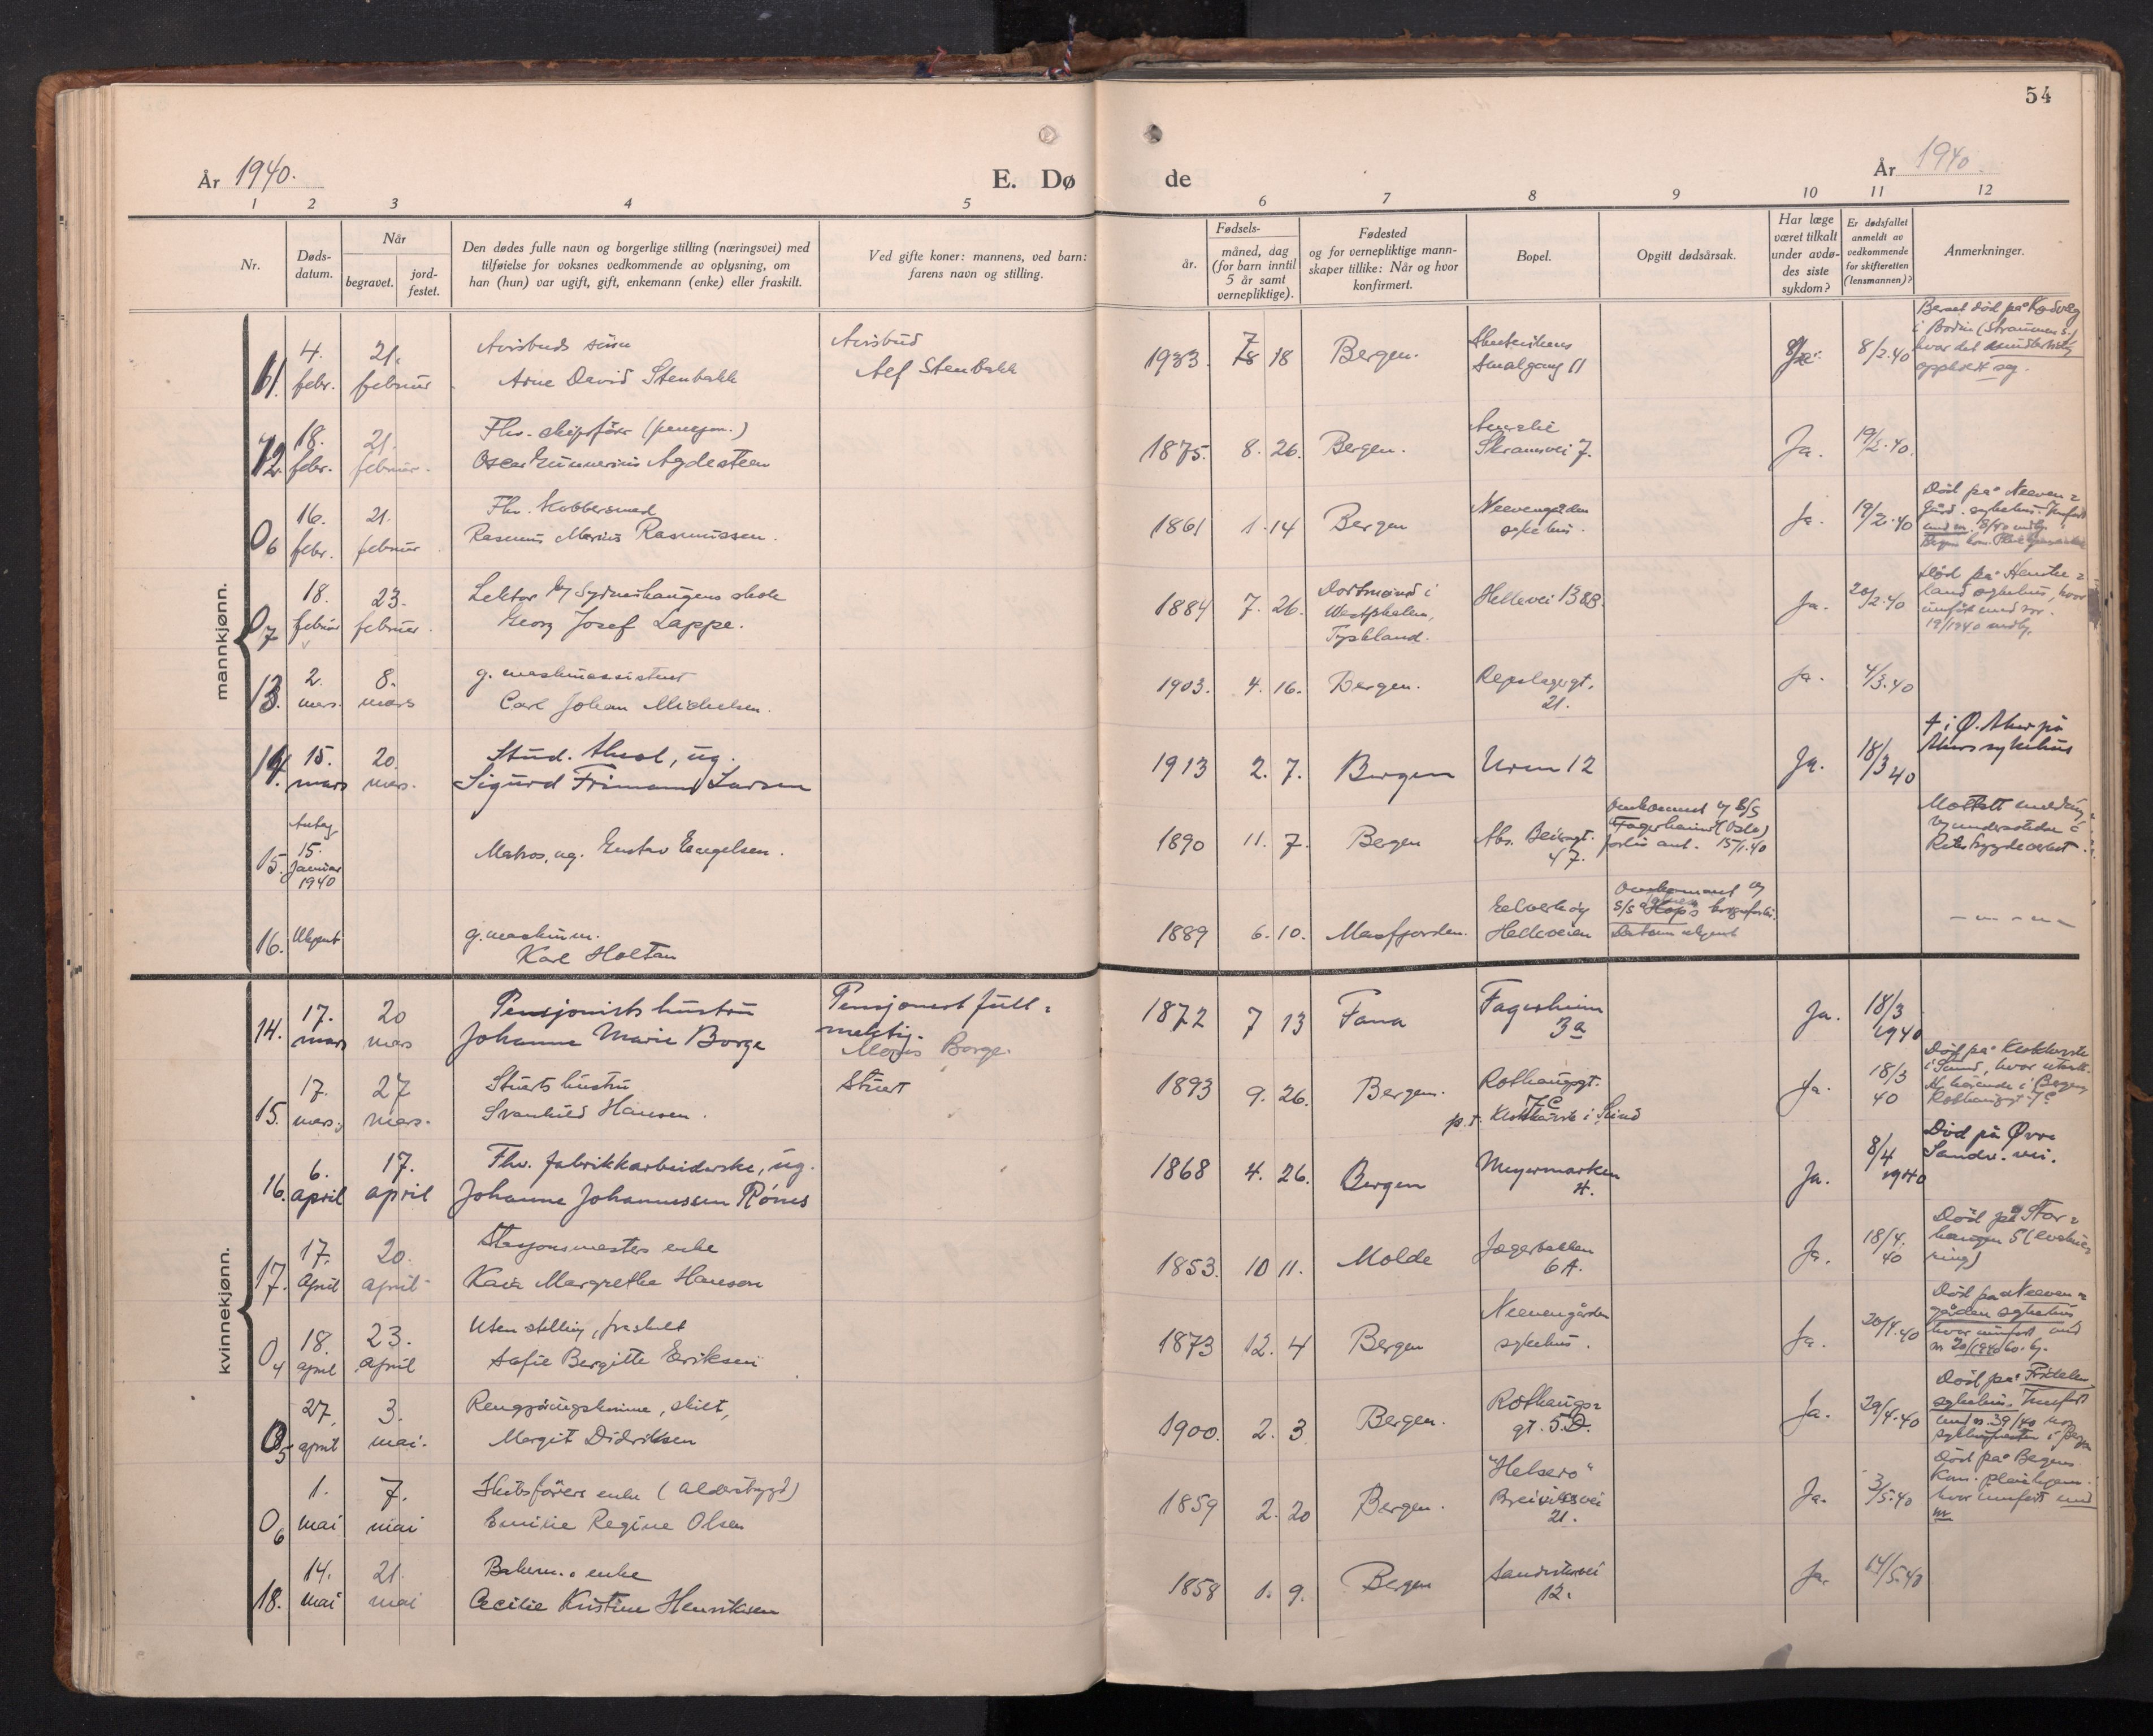 54
År 1940.
E. Dø de
År 1940
1 2 3 4 5 6 7 8 9 10 11 12
Nr.
Døds-
datum.
Når
begravet.
jord-
festet.
Den dødes fulle navn og borgerlige stilling (næringsvei) med
tilføielse for voksnes vedkommende av oplysning, om
han (hun) var ugift, gift, enkemann (enke) eller fraskilt.
Ved gifte koner: mannens, ved barn:
farens navn og stilling.
Fødsels-
år.
måned, dag
(for barn inntil
5 år samt
vernepliktige).
Fødested
og for vernepliktige mann-
skaper tillike: Når og hvor
konfirmert.
Bopel.
Opgitt dødsårsak.
Har læge
været tilkalt
under avdø-
des siste
sykdom?
Er dødsfallet
anmeldt av
vedkommende
for skifteretten
(lensmannen)?
Anmerkninger.
mannkjønn.
11. 4. febr. 21. februar
Avisbuds sönn
Arne David Stenbakk
Avisbud
Alf Stenbakk
1933. 18 Bergen.
Smalgang 11
8/2.40
12. 18. febr. 21. februar.
Fhv. skipsförer (pensjon.)
Oscar Gunnerius Agdesteen
1875. 8. 26. Bergen.
Skramsvei 7.
Ja. 19/2.40.
06 16. febr. 21. februar
Fhv. Kobbersmed
Rasmus Marius Rasmussen.
1861 1. 14 Bergen
Neevengården
sykehus.
Ja. 19/2.40
Död på Neeven=
gård. sykehus.
07 18. februar 23. februar.
Lektor v/ Sydneshaugens skole
Georg Josef Lappe.
1884 7. 26.
Dortmund i
Westphalen,
Tyskland.
Hellevei 138B.
Ja. 20/2.40
Död på Hauke=
land sykehus, hvor
innfört med nr.
19/1940 mdby.
13. 2. mars. 8. mars
g. maskinassistent
Carl Johan Michelsen.
1903. 4. 16. Bergen.
Repslagergt.
21.
Ja. 4/3.40
14. 15. mars 20. mars.
Stud. , ug.
Sigurd Frimann Larsen
1913 2. 7. Bergen Uren 12
Ja. 18/3 40
† i Ø. Aker på
Akers sykehus
15. Antag. 15. Januar 1940
Matros, ug. Gustav Engelsen.
1890 11. 7. Bergen
47.
Omkommet v/ B/S
"Fagerheim" (Oslo)
forlis ant. 15/1.40
Mottatt melding
16. Ukjent
g. maskinm.
Karl Holtan
1889 6. 10. Masfjorden.
Helleveien
Omkommet v/
S/S "Hop's"
Datum ukjent
kvinnekjønn.
14. 17. mars 20 mars
Pensjonists hustru
Johanne Marie Borge
Pensjonert full=
mektig.
Borge.
1872 7 13 Fana
Fagerheim
3a
Ja. 18/3 1940
15. 17. mars. 27 mars.
Stuerts hustru
Svanhild Hansen.
Stuert
1893 9. 26. Bergen.
Rothaugsgt.
7C
p.t.
Ja. 18/3 40
16. 6. april 17. april
Fhv. fabrikkarbeiderske, ug.
Johanne Johannessen Rönes
1868 4. 26. Bergen
Meyermarken
4.
Ja. 8/4 1940
Död på Øvre
Sandv. vei.
17. 17. April 20. april
Stasjonsmesters enke
Kaia Margrethe Hanson
1853. 10 11. Molde
Jægerbakken
6A.
Ja. 18/4. 40
Död på Stor=
haugen 5
04 18. april 23. april
Uten stilling, fraskilt
Sofie Bergitte Eriksen
1873 12. 4 Bergen
Neevengården
sykehus.
Ja. 20/4.40
Död på Neeven=
gården sykehus
hvor innfört med
05 27. april 3. mai.
Rengjöringskvinne, skilt,
Margit Didriksen
1900. 2. 3 Bergen.
Rothaugs=
gt. 5D.
Ja. 29/4.40
06 1. mai 7. mai
Skibsförers enke (alderstrygd)
Emilie Regine Olsen
1859 2. 20 Bergen.
"Helsero"
Breiviksvei
21.
Ja. 3/5.40
Död på Bergens
Kom. pleiehjem.
hvor innfört med
nr.
18. 14. mai 21. mai
Bakerm. enke
Cecilie Kristine Henriksen
1858 1. 9. Bergen
Sandviksvei
12.
Ja. 14/5.40